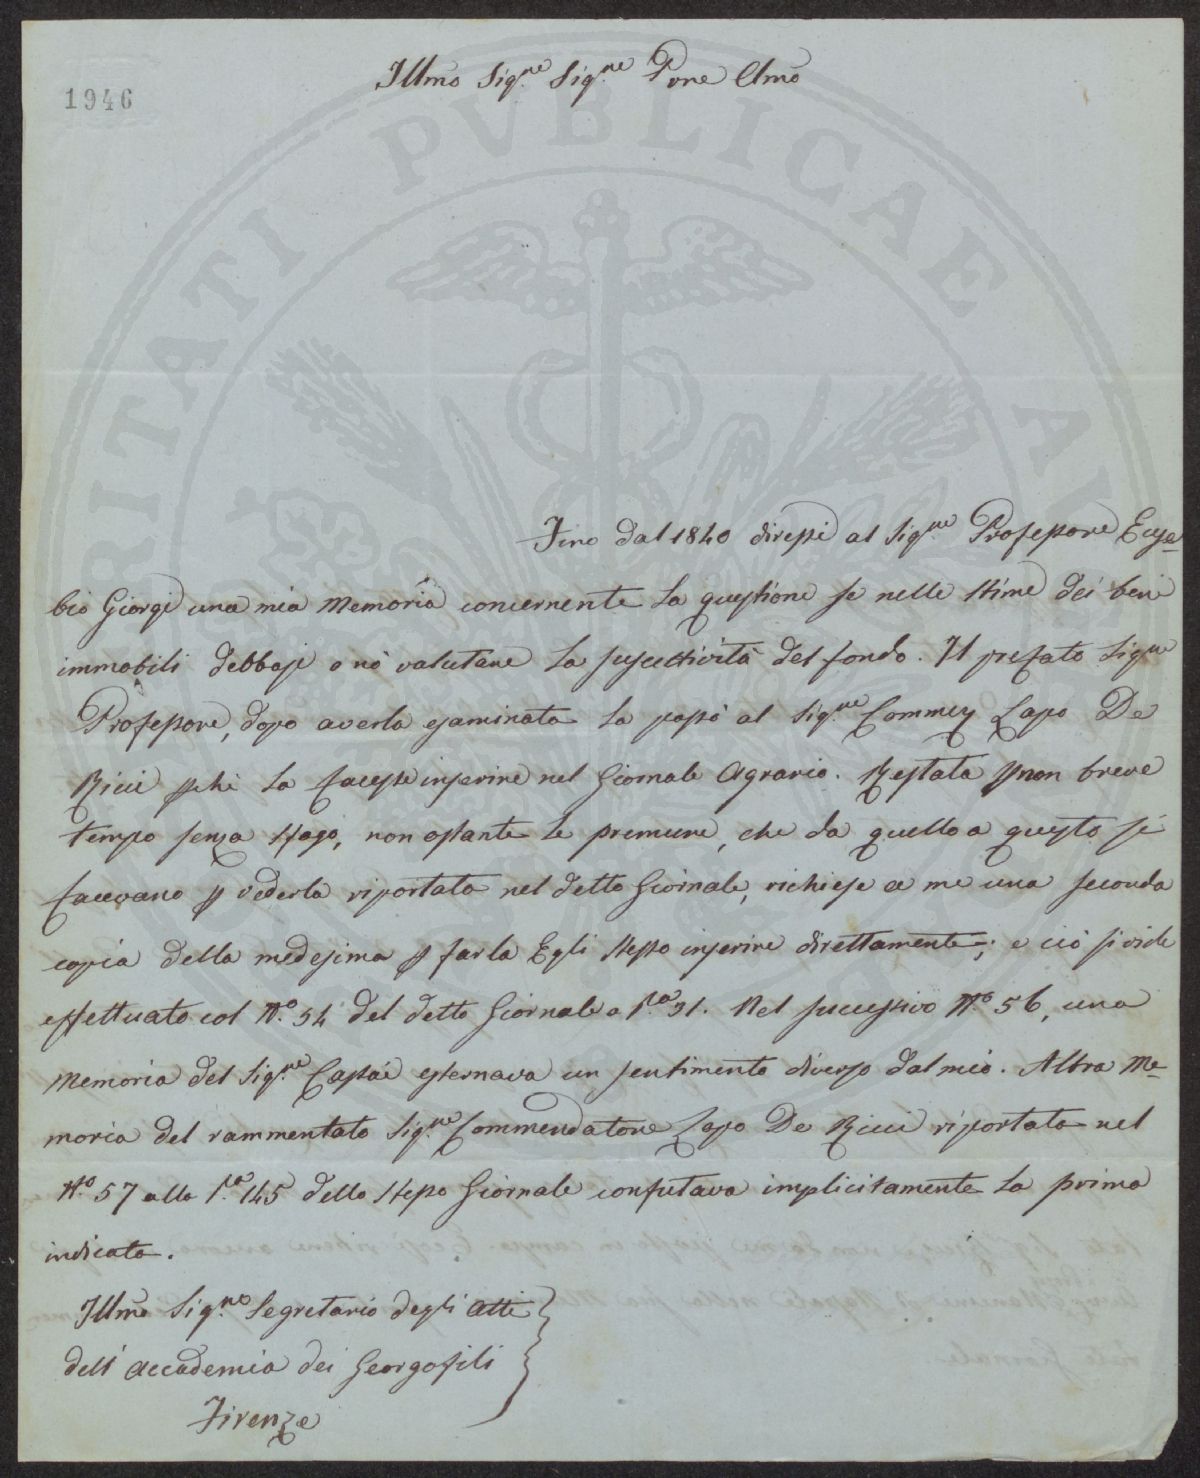 1946
Illmo Sigre Sigre Pone Clmo
Fino dal 1840 diressi al Sigre Professore Euse=
bio Giorgi una mia Memoria concernente la questione se nelle stime dei beni
immobili debbasi o nò valutare la suscettività del fondo. Il prefato Sigre
Professore, dopo averla esaminata la passò al Sigre Commre Lapo De
Ricci pchè la facesse inserire nel Giornale Agrario. Restata p non breve
tempo senza sfogo, non ostante le premure, che da quello a questo si
facevano p vederla riportata nel detto Giornale, richiese a me una seconda
copia della medesima p farla Egli stesso inserire direttamente; e ciò si vide
effettuato col No. 54 del detto Giornale a Pa. 31. Nel successivo No. 56, una
Memoria del Sigre Capei esternava un sentimento diverso dal mio. Altra Me=
moria del rammentato Sigre Commendatore Lapo De Ricci riportata nel
No. 57 alla Pa. 145 dello stesso Giornale confutava implicitamente la prima
indicata.
Illmo Sigre Segretario degli Atti
dell'Accademia dei Georgofili
Firenze
PUBLICAE